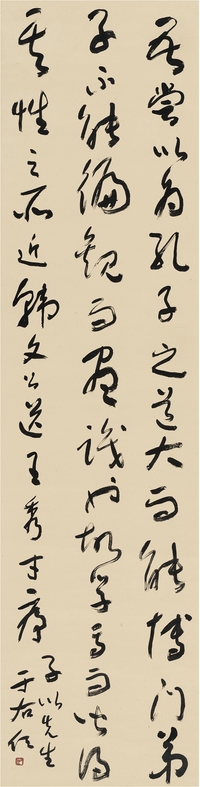 吾嘗以為孔子之道大而能博門弟
子不能徧觀而盡識也故學焉而皆得
其性之所近韓文公送王秀才序
子以先生
于右任